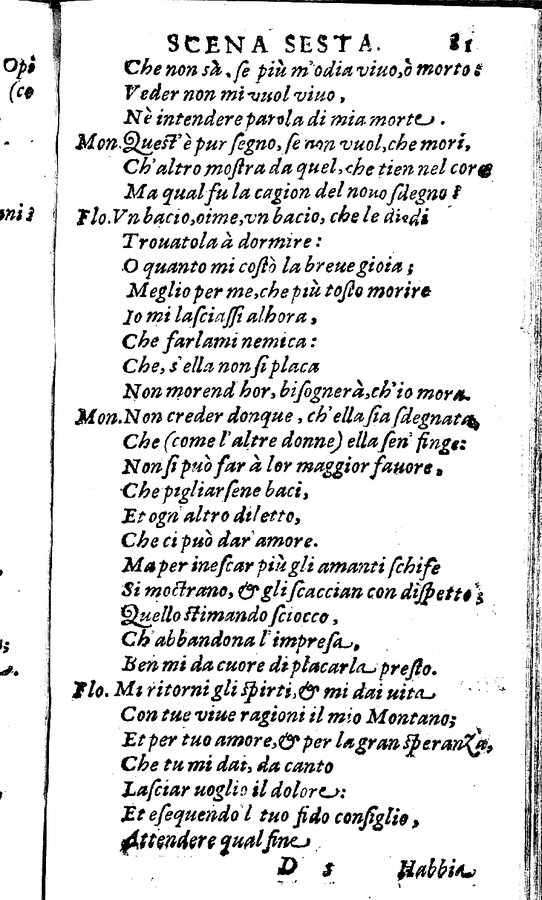 SCENA SESTA. 81
Che non sà, se più m'odia viuo, ò morto:
Veder non mi vuol viuo,
Nè intendere parola di mia morte.
Mon. Quest'è pur segno, se non vuol, che mori,
Ch'altro mostra da quel, che tien nel core
Ma qual fu la cagion del nouo sdegno?
Flo. Vn bacio, oime, vn bacio, che le diedi
Trouatola à dormire:
O quanto mi costò la breue gioia;
Meglio per me, che più tosto morire
Io mi lasciassi alhora,
Che farlami nemica:
Che, s'ella non si placa
Non morend'hor, bisognerà, ch'io mora.
Mon. Non creder donque, ch'ella sia sdegnata,
Che (come l'altre donne) ella sen' finge:
Non si può far à lor maggior fauore,
Che pigliarsene baci,
Et ogn'altro diletto,
Che ci può dar'amore.
Ma per inescar più gli amanti schife
Si mostrano, & gli scaccian con dispetto;
Quello stimando sciocco,
Ch'abbandona l'impresa,
Ben mi da cuore di placarla presto.
Flo. Mi ritorni gli spirti, & mi dai uita
Con tue viue ragioni il mio Montano;
Et per tuo amore, & per la gran speranza,
Che tu mi dai, da canto
Lasciar uoglio il dolore:
Et esequendo'l tuo fido consiglio,
Attendere qual fine
D 5 Habbia
Opi
(co
oni?